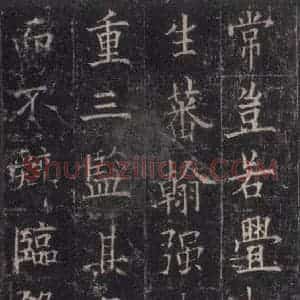 常豈若疊
生蕃翰强
重三監其
而不 臨
shufaziliao.com